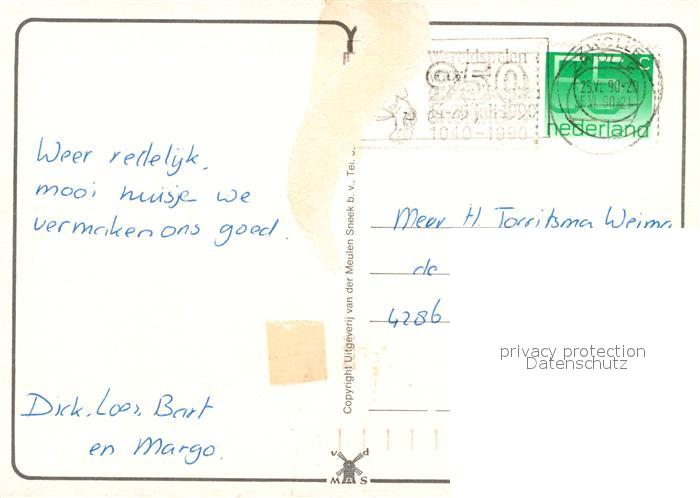 Weer redelijk,
mooi huisje we
vermaken ons goed.
Dick, Loes, Bart
en Margo.
Copyright Uitgeverij van der Meulen Sneek b. v., Tel.
v d
MAS
Wereldspelen
950
juli 1990
1940-1990
ZWOLLE
25.VI.90-20
55 c
nederland
Mevr H. Torritsma Weima
de
4286
privacy protection
Datenschutz